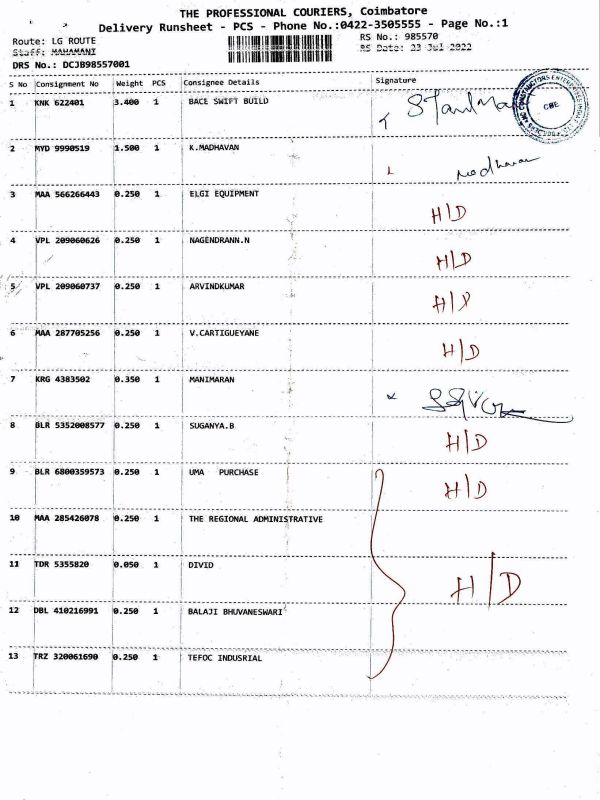 THE PROFESSIONAL COURIERS, Coimbatore
Delivery Runsheet - PCS - Phone No.:0422-3505555 - Page No.:1
Route: LG ROUTE RS No.: 985570
Staff: MAHAMANI RS Date: 23 Jul 2022
DRS No.: DCJB98557001
S No Consignment No Weight PCS Consignee Details Signature
1 KNK 622401 3.400 1 BACE SWIFT BUILD
CBE
2 MYD 9990519 1.500 1 K.MADHAVAN madhavan
3 MAA 566266443 0.250 1 ELGI EQUIPMENT H/D
4 VPL 209060626 0.250 1 NAGENDRANN.N H/D
5 VPL 209060737 0.250 1 ARVINDKUMAR H/D
6 MAA 287705256 0.250 1 V.CARTIGUEYANE H/D
7 KRG 4383502 0.350 1 MANIMARAN
8 BLR 5352008577 0.250 1 SUGANYA.B H/D
9 BLR 6800359573 0.250 1 UMA PURCHASE H/D
10 MAA 285426078 0.250 1 THE REGIONAL ADMINISTRATIVE
11 TDR 5355820 0.050 1 DIVID H/D
12 DBL 410216991 0.250 1 BALAJI BHUVANESWARI
13 TRZ 320061690 0.250 1 TEFOC INDUSRIAL